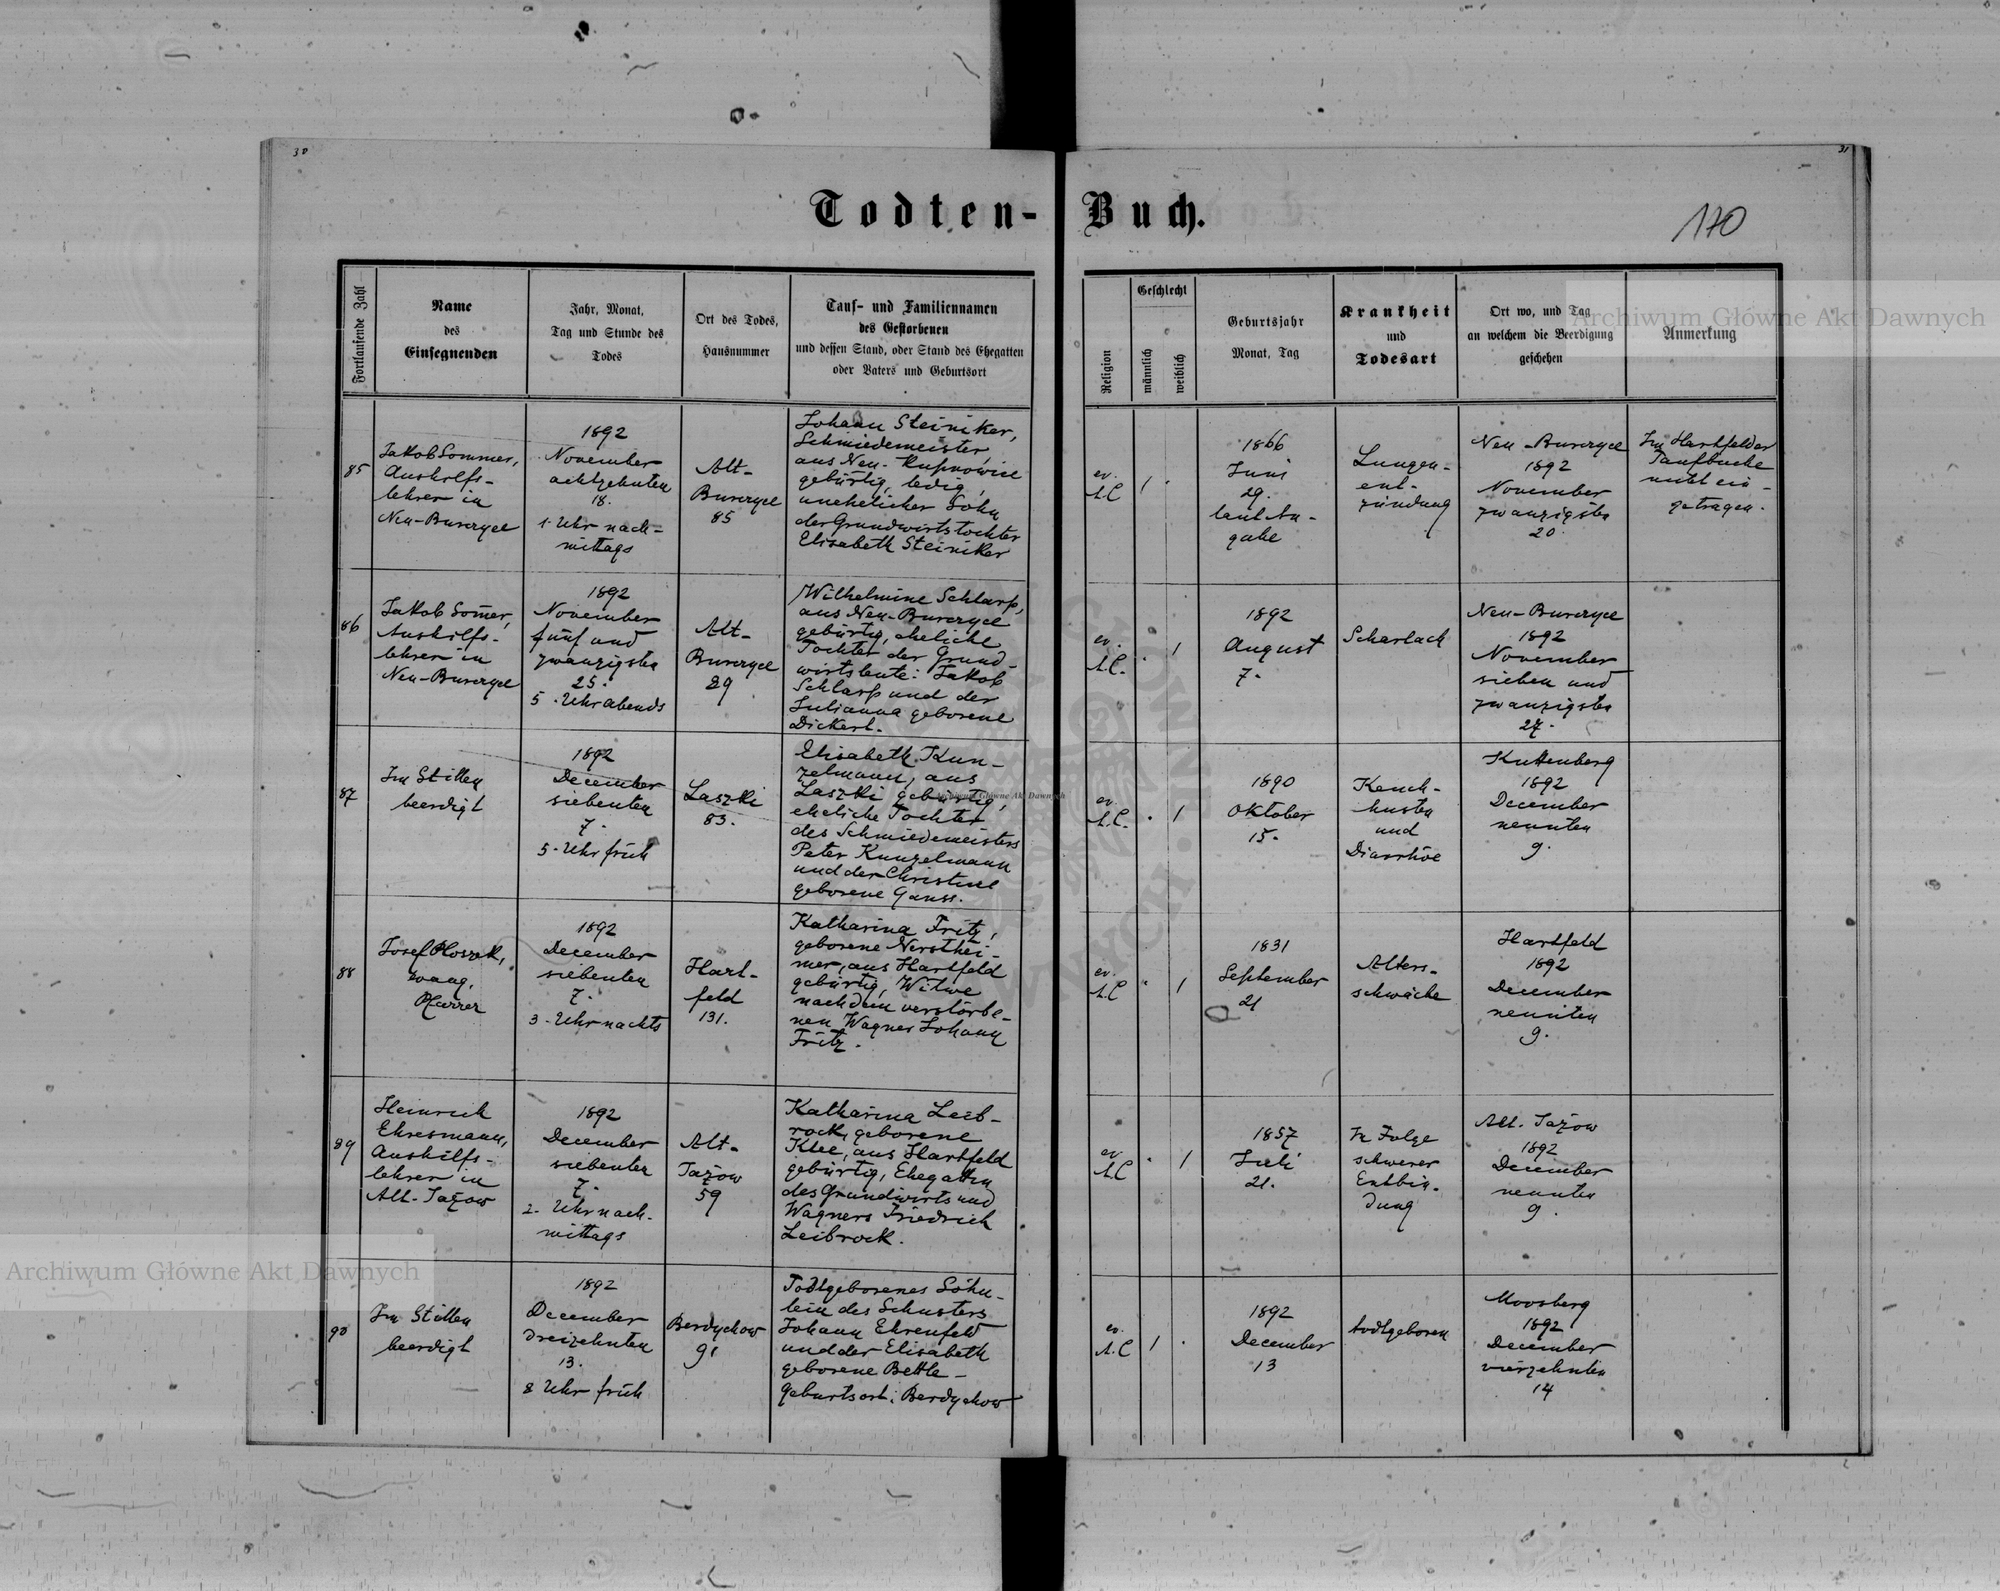 30
31
Todten-Buch.
170
Fortlaufende Zahl
Name
des
Einsegnenden
Jahr, Monat,
Tag und Stunde des
Todes
Ort des Todes,
Hausnummer
Tauf- und Familiennamen
des Gestorbenen
und dessen Stand, oder Stand des Ehegatten
oder Vaters und Geburtsort
Religion
Geschlecht
männlich
weiblich
Geburtsjahr
Monat, Tag
Krankheit
und
Todesart
Ort wo, und Tag
an welchem die Beerdigung
geschehen
Anmerkung
85
Jakob Sommer,
Aushilfs-
lehrer in
Neu-Bunczyce
1892
November
achtzehnten
18.
1. Uhr nach-
mittags
Alt-
Bunczyce
85
Johann Steiniker,
Schmiedemeister,
aus Neu-Kupnowice
gebürtig, ledig,
unehelicher Sohn
der Grundwirtstochter
Elisabeth Steiniker
ev.
A.C
1
1866
Juni
29.
laut An-
gabe
Lungen-
ent-
zündung
Neu-Bunczyce
1892
November
zwanzigsten
20.
Im Hartfelder
Taufbuche
nicht ein-
getragen.
86
Jakob Som̄er,
Aushilfs-
lehrer in
Neu-Bunczyce
1892
November
fünf und
zwanzigsten
25.
5. Uhr abends
Alt-
Bunczyce
29
Wilhelmine Schlarp,
aus Neu-Bunczyce
gebürtig, eheliche
Tochter der Grund-
wirtsleute: Jakob
Schlarp und der
Julianna geborene
Dickert.
ev.
A.C.
1
1892
August
7.
Scharlach
Neu-Bunczyce
1892
November
sieben und
zwanzigsten
27.
87
Im Stillen
beerdigt
1892
December
siebenten
7.
5. Uhr früh
Laszki
83.
Elisabeth Kun-
zelmann, aus
Laszki gebürtig,
eheliche Tochter
des Schmiedemeisters
Peter Kunzelmann
und der Christine
geborene Ganss.
ev.
A.C.
1
1890
Oktober
15.
Keuch-
husten
und
Diarrhöe
Kuttenberg
1892
December
neunten
9.
88
Josef Ploszek,
evang.
Pfarrer
1892
December
siebenten
7.
3. Uhr nachts
Hart-
feld
131.
Katharina Fritz,
geborene Nersthei-
mer, aus Hartfeld
gebürtig, Witwe
nach dem verstorbe-
nen Wagner Johann
Fritz.
ev.
A.C
1
1831
September
21
Alters-
schwäche
Hartfeld
1892
December
neunten
9.
89
Heinrich
Ehresmann,
Aushilfs-
lehrer in
Alt-Jażow
1892
December
siebenten
7.
2. Uhr nach-
mittags
Alt-
Jażow
59
Katharina Leib-
rock, geborene
Klee, aus Hartfeld
gebürtig, Ehegattin
des Grundwirts und
Wagners Friedrich
Leibrock.
ev.
A.C
1
1857
Juli
21.
In Folge
schwerer
Entbin-
dung
Alt. Jażow
1892
December
neunten
9.
90
Im Stillen
beerdigt
1892
December
dreizehnten
13.
8 Uhr früh
Berdychow
9.
Todtgeborenes Söhn-
lein des Schusters
Johann Ehrenfeld
und der Elisabeth
geborene Bettle-
Geburtsort: Berdychow
ev.
A.C
1
1892
December
13
todtgeboren
Moosberg
1892
December
vierzehnten
14
Archiwum Główne Akt Dawnych
Archiwum Główne Akt Dawnych
Archiwum Główne Akt Dawnych